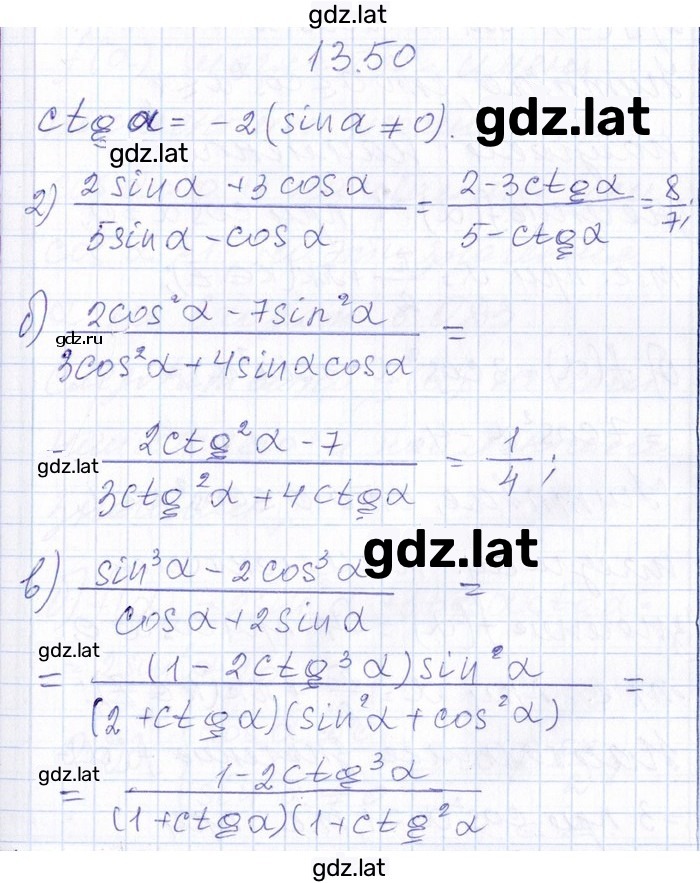 gdz.lat
13.50
ctg α = -2 (sin α ≠ 0).
gdz.lat
gdz.lat
а) (2 sin α + 3 cos α)/(5 sin α - cos α) = (2 - 3 ctg α)/(5 - ctg α) = 8/7;
б) (2cos²α - 7sin²α)/(3cos²α + 4sin α cos α) =
gdz.ru
= (2ctg²α - 7)/(3ctg²α + 4ctg α) = 1/4;
gdz.lat
gdz.lat
в) (sin³α - 2cos³α)/(cos α + 2sin α) =
gdz.lat
= ((1 - 2ctg³α) sin²α)/((2 + ctg α)(sin²α + cos²α)) =
gdz.lat
= (1 - 2ctg³α)/((1 + ctg α)(1 + ctg²α
gdz.lat